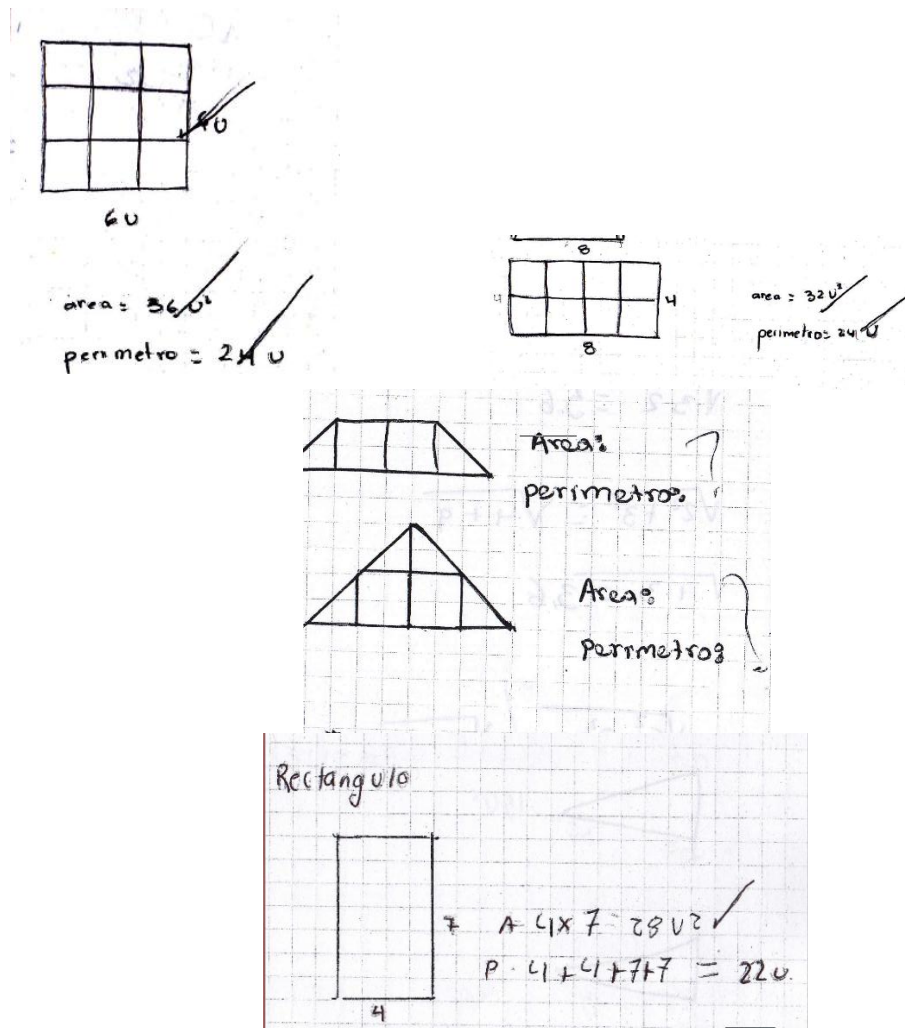 6 U
area = 36 U²
perimetro = 24 U
8
4
4
8
area = 32 U²
perimetro = 24 U
Area:
perimetro:
Area:
Perimetro:
Rectangulo
7
A = 4 x 7 = 28 U2
P = 4 + 4 + 7 + 7 = 22 U.
4